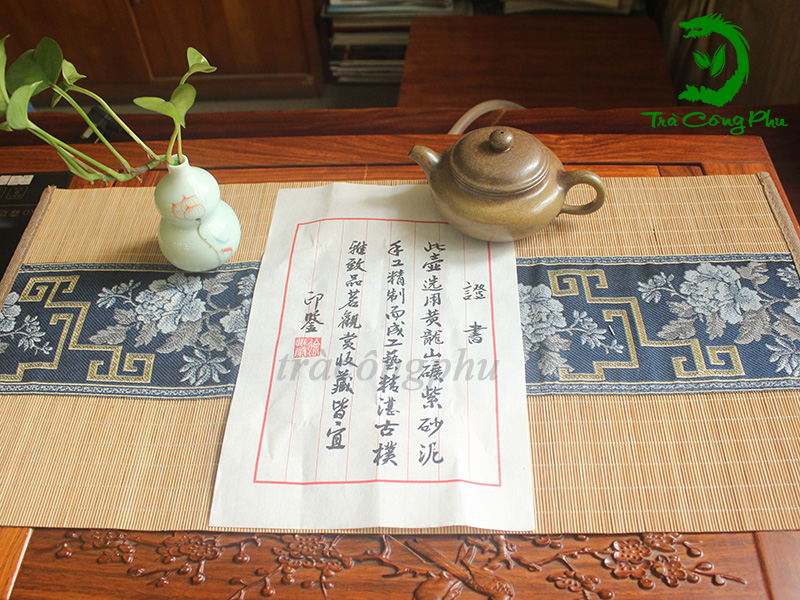 證書
此壺选用黄龍山礦紫砂泥
手工精制而成工藝精湛古樸
雅致品茗觀赏收藏皆宜
印鑒
Trà Công Phu
tràcôngphu